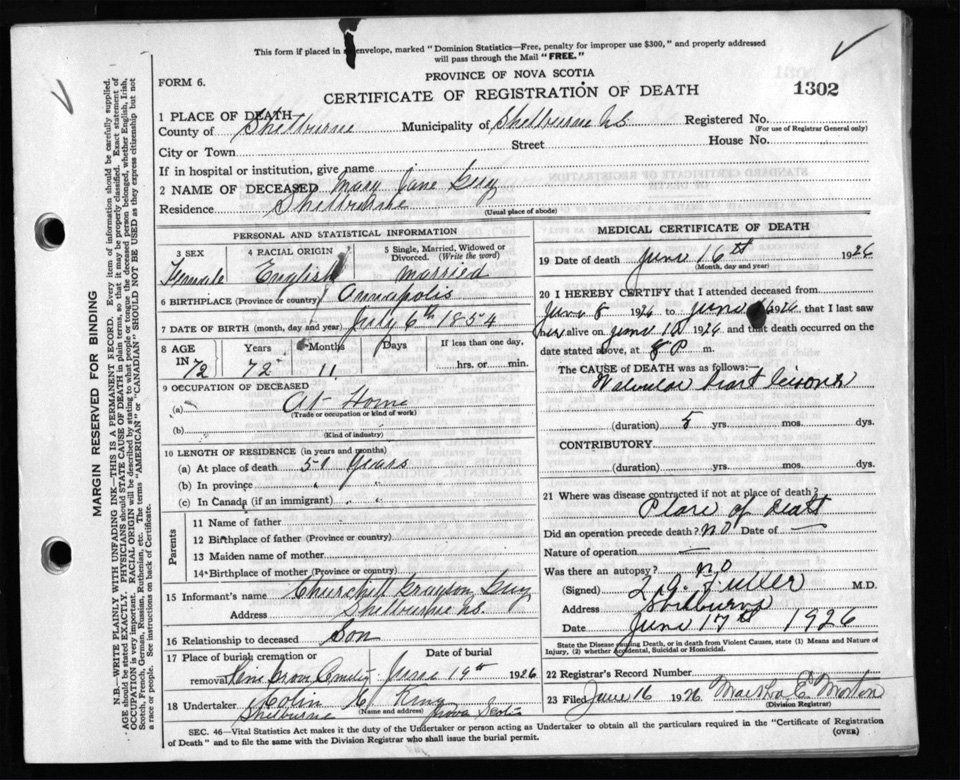 This form if placed in an envelope, marked "Dominion Statistics—Free, penalty for improper use $300," and properly addressed
will pass through the Mail "FREE."
PROVINCE OF NOVA SCOTIA
FORM 6.
CERTIFICATE OF REGISTRATION OF DEATH
1302
1 PLACE OF DEATH
County of Shelburne Municipality of Shelburne N.S. Registered No.
(For use of Registrar General only)
City or Town Street House No.
If in hospital or institution, give name
2 NAME OF DECEASED Mary Jane Guy
Residence Shelburne
(Usual place of abode)
PERSONAL AND STATISTICAL INFORMATION
3 SEX
Female
4 RACIAL ORIGIN
English
5 Single, Married, Widowed or Divorced. (Write the word)
married
6 BIRTHPLACE (Province or country) Annapolis
7 DATE OF BIRTH (month, day and year) July 6th 1854
8 AGE Years Months Days If less than one day,
IN 72 72 11 hrs. or min.
9 OCCUPATION OF DECEASED
(a) At Home
(Trade or occupation or kind of work)
(b)
(Kind of industry)
10 LENGTH OF RESIDENCE (in years and months)
(a) At place of death 51 Years
(b) In province " "
(c) In Canada (if an immigrant) " "
Parents
11 Name of father
12 Birthplace of father (Province or country)
13 Maiden name of mother
14 Birthplace of mother (Province or country)
15 Informant's name Churchill Grayson Guy
Address Shelburne N.S.
16 Relationship to deceased Son
17 Place of burial, cremation or Date of burial
removal Pine Grove Cemetery June 19th 1926
18 Undertaker Colin C King
(Name and address)
Shelburne Nova Scotia
MEDICAL CERTIFICATE OF DEATH
19 Date of death June 16th 1926
(Month, day and year)
20 I HEREBY CERTIFY that I attended deceased from
June 8 1926 to June 1926 that I last saw
her alive on June 12 1926 and that death occurred on the
date stated above, at 8 P m.
The CAUSE of DEATH was as follows:—
Valvular Heart
(duration) 5 yrs. mos. dys.
CONTRIBUTORY
(duration) yrs. mos. dys.
21 Where was disease contracted if not at place of death?
Place of Death
Did an operation precede death? No Date of —
Nature of operation —
Was there an autopsy? no
(Signed) Fuller M.D.
Address Shelburne
Date June 17th 1926
State the Disease causing Death, or in death from Violent Causes, state (1) Means and Nature of
Injury, (2) whether Accidental, Suicidal or Homicidal.
22 Registrar's Record Number
23 Filed June 16 1926 Martha E Morton
(Division Registrar)
SEC. 46—Vital Statistics Act makes it the duty of the Undertaker or person acting as Undertaker to obtain all the particulars required in the "Certificate of Registration
of Death" and to file the same with the Division Registrar who shall issue the burial permit.
(OVER)
MARGIN RESERVED FOR BINDING
N.B.—WRITE PLAINLY WITH UNFADING INK—THIS IS A PERMANENT RECORD. Every item of information should be carefully supplied.
AGE should be stated EXACTLY. PHYSICIANS should STATE CAUSE OF DEATH in plain terms, so that it may be properly classified. Exact statement of
OCCUPATION is very important. RACIAL ORIGIN will be described by stating to what people or tongue the deceased person belonged, whether English, Irish,
Scotch, French, German, Russian, Ruthenian, etc. The terms "AMERICAN" or "CANADIAN" SHOULD NOT BE USED as they express citizenship but not
a race or people. See instructions on back of Certificate.